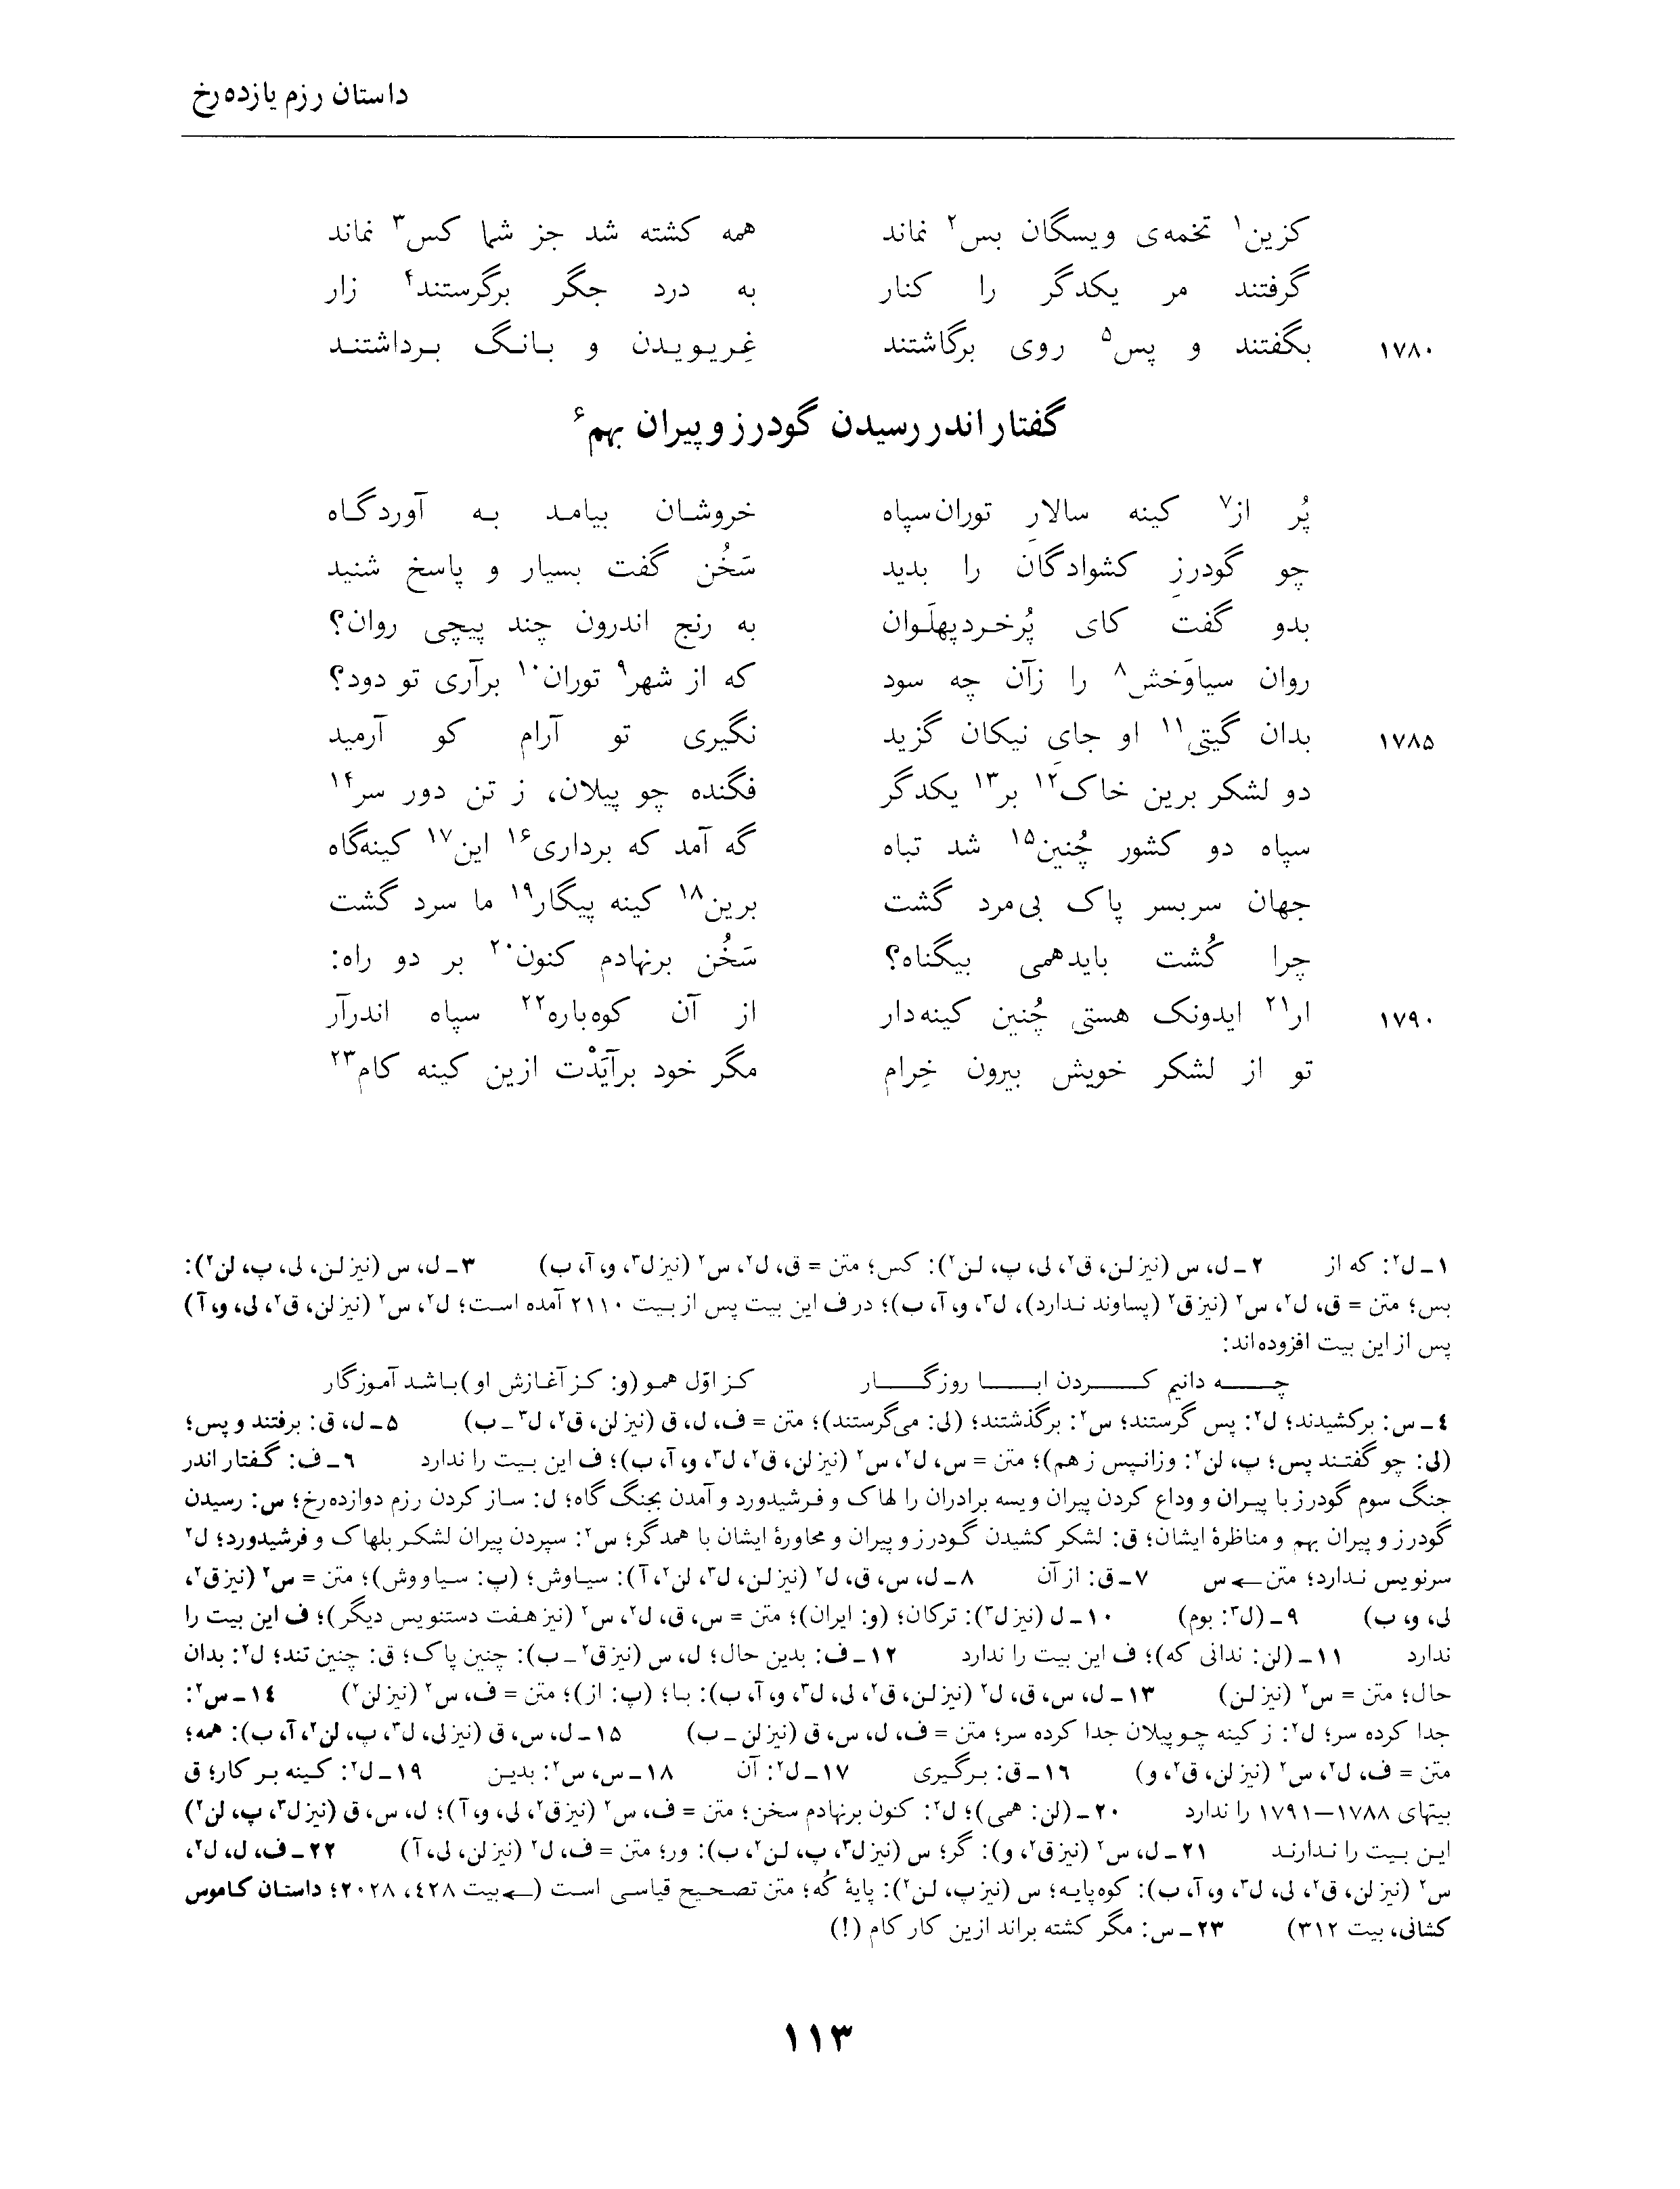 داستان رزم یازده‌رخ
کزین۱ تخمه‌ی ویسگان بس۲ نماند همه کشته شد جز شما کس۳ نماند
گرفتند مر یکدگر را کنار به درد جگر برگرستند۴ زار
۱۷۸۰ بگفتند و پس۵ روی برگاشتند غِریویدن و بانگ برداشتند
گفتار اندر رسیدن گودرز و پیران بهم۶
پُر از۷ کینه سالارِ توران‌سپاه خروشان بیامد به آوردگاه
چو گودرزِ کشوادگان را بدید سَخُن گفت بسیار و پاسخ شنید
بدو گفت کای پُرخرد‌پهلَوان به رنج اندرون چند پیچی روان؟
روان سیاوَخش۸ را زآن چه سود که از شهر۹ توران۱۰ برآری تو دود؟
۱۷۸۵ بدان گیتی۱۱ او جایِ نیکان گزید نگیری تو آرام کو آرمید
دو لشکر برین خاک۱۲ بر۱۳ یکدگر فگنده چو پیلان، ز تن دور سر۱۴
سپاه دو کشور چُنین۱۵ شد تباه گه آمد که برداری۱۶ این۱۷ کینه‌گاه
جهان سربسر پاک بی‌مرد گشت برین۱۸ کینه پیگار۱۹ ما سرد گشت
چرا کُشت بایدهمی بیگناه؟ سَخُن برنهادم کنون۲۰ بر دو راه:
۱۷۹۰ ار۲۱ ایدونک هستی چُنین کینه‌دار از آن کوه‌باره۲۲ سپاه اندرآر
تو از لشکر خویش بیرون خِرام مگر خود برآیَدْت ازین کینه کام۲۳
۱ـ ل۲: که از ۲ـ ل، س (نیز لن، ق۲، لی، پ، لن۲): کس؛ متن = ق، ل۲، س۲ (نیز ل۳، و، آ، ب) ۳ـ ل، س (نیز لن، لی، پ، لن۲):
بس؛ متن = ق، ل۲، س۲ (نیز ق۲ (پساوند ندارد)، ل۳، و، آ، ب)؛ در ف این بیت پس از بیت ۲۱۱۰ آمده است؛ ل۲، س۲ (نیز لن، ق۲، لی، و، آ)
پس از این بیت افزوده‌اند:
چه دانیم کردن ابا روزگار کز اوّل همو (و: کز آغازش او) باشد آموزگار
٤ـ س: برکشیدند؛ ل۲: پس گرستند؛ س۲: برگذشتند؛ (لی: می‌گرستند)؛ متن = ف، ل، ق (نیز لن، ق۲، ل۳ـ ب) ۵ـ ل، ق: برفتند و پس؛
(لی: چو گفتند پس؛ پ، لن۲: وزانپس ز هم)؛ متن = س، ل۲، س۲ (نیز لن، ق۲، ل۳، و، آ، ب)؛ ف این بیت را ندارد ٦ـ ف: گفتار اندر
جنگ سوم گودرز با پیران و وداع کردن پیران ویسه برادران را لهاک و فرشیدورد و آمدن بجنگ گاه؛ ل: ساز کردن رزم دوازده‌رخ؛ س: رسیدن
گودرز و پیران بهم و مناظرهٔ ایشان؛ ق: لشکر کشیدن گودرز و پیران و محاورهٔ ایشان با همدگر؛ س۲: سپردن پیران لشکر بلهاک و فرشیدورد؛ ل۲
سرنویس ندارد؛ متن ← س ۷ـ ق: از آن ۸ـ ل، س، ق، ل۲ (نیز لن، ل۳، لن۲، آ): سیاوش؛ (پ: سیاووش)؛ متن = س۲ (نیز ق۲،
لی، و، ب) ۹ـ (ل۳: بوم) ۱۰ـ ل (نیز ل۳): ترکان؛ (و: ایران)؛ متن = س، ق، ل۲، س۲ (نیز هفت دستنویس دیگر)؛ ف این بیت را
ندارد ۱۱ـ (لن: ندانی که)؛ ف این بیت را ندارد ۱۲ـ ف: بدین حال؛ ل، س (نیز ق۲ـ ب): چنین پاک؛ ق: چنین تند؛ ل۲: بدان
حال؛ متن = س۲ (نیز لن) ۱۳ـ ل، س، ق، ل۲ (نیز لن، ق۲، لی، ل۳، و، آ، ب): با؛ (پ: از)؛ متن = ف، س۲ (نیز لن۲) ۱٤ـ س۲:
جدا کرده سر؛ ل۲: ز کینه چو پیلان جدا کرده سر؛ متن = ف، ل، س، ق (نیز لن ـ ب) ۱۵ـ ل، س، ق (نیز لی، ل۳، پ، لن۲، آ، ب): همه؛
متن = ف، ل۲، س۲ (نیز لن، ق۲، و) ۱٦ـ ق: برگیری ۱۷ـ ل۲: آن ۱۸ـ س، س۲: بدین ۱۹ـ ل۲: کینه بر کار؛ ق
بیتهای ۱۷۸۸—۱۷۹۱ را ندارد ۲۰ـ (لن: همی)؛ ل۲: کنون برنهادم سخن؛ متن = ف، س۲ (نیز ق۲، لی، و، آ)؛ ل، س، ق (نیز ل۳، پ، لن۲)
این بیت را ندارند ۲۱ـ ل، س۲ (نیز ق۲، و): گر؛ س (نیز ل۳، پ، لن۲، ب): ور؛ متن = ف، ل۲ (نیز لن، لی، آ) ۲۲ـ ف، ل، ل۲،
س۲ (نیز لن، ق۲، لی، ل۳، و، آ، ب): کوه‌پایه؛ س (نیز پ، لن۲): پایهٔ کُه؛ متن تصحیح قیاسی است (← بیت ٤۲۸، ۲۰۲۸؛ داستان کاموس
کشانی، بیت ۳۱۲) ۲۳ـ س: مگر کشته براند ازین کار کام (!)
۱۱۳